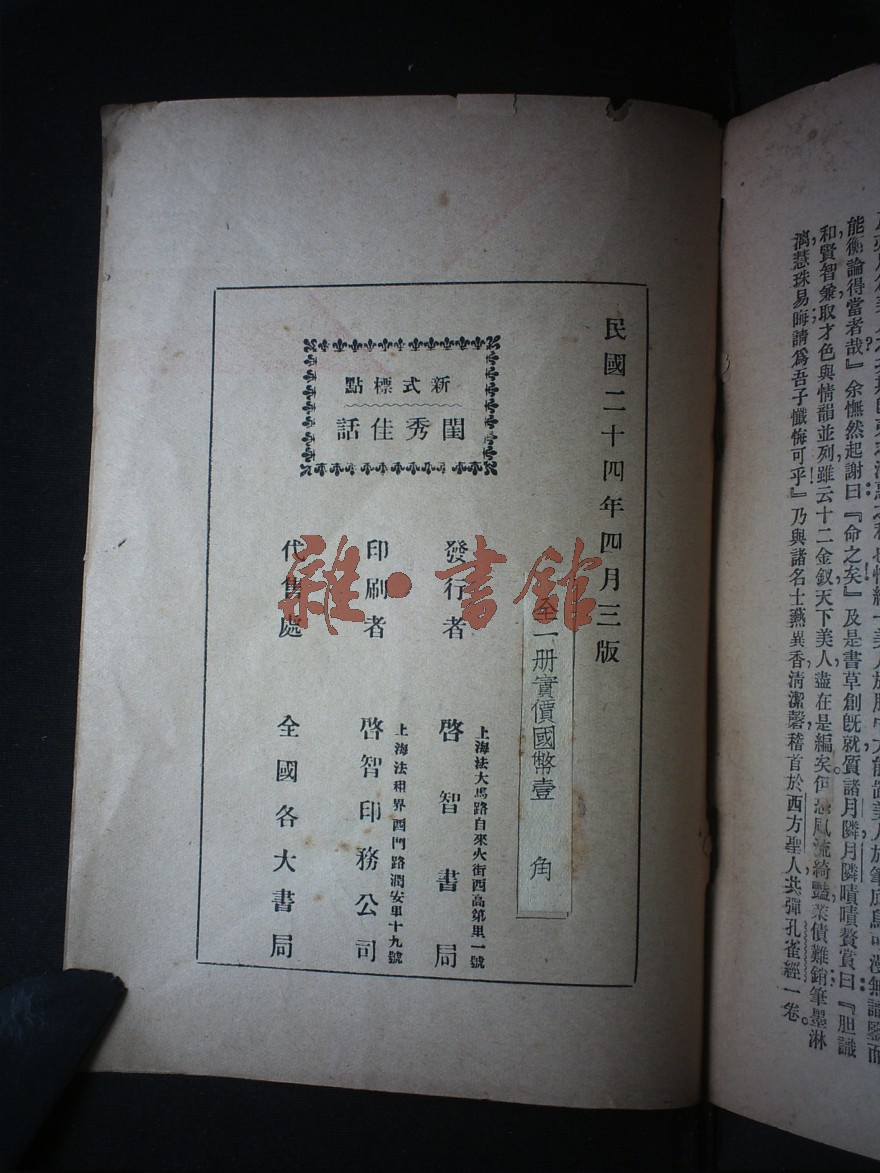 能衡論得當者哉』余憮然起謝曰『命之矣』及是書草創旣就質諸月隣月隣嘖嘖贊賞曰『胆識
和賢智兼取才色與情韻並列雖云十二金釵天下美人盡在是編矣
風流綺豔業債難銷筆墨淋
漓慧珠易晦請爲吾子懺悔可乎』乃與諸名士爇異香淸潔罄稽首於西方聖人共彈孔雀經一卷。
民國二十四年四月三版
新式標點
閨秀佳話
全一册實價國幣壹 角
發行者
上海法大馬路自來火街西高第里一號
啓智書局
印刷者
上海法租界西門路潤安里十九號
啓智印務公司
代售處
全國各大書局
雜·書館